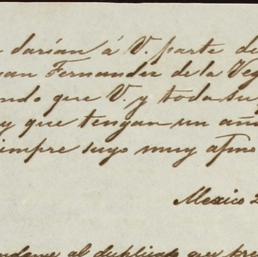 darían á V. parte de
Fernandez de la Veg
que V. y toda su
y que tengan un año
siempre suyo muy afmo
Mexico 2
al duplicado que pre